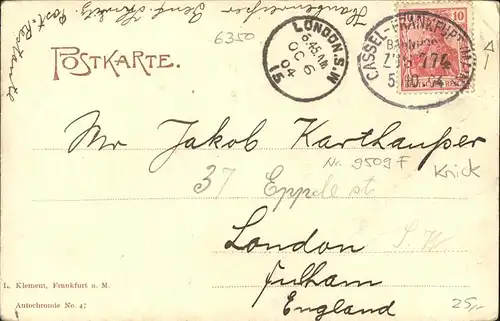 Post. Restante
6350
POSTKARTE.
LONDON. S.W
6.45 AM
OC 6
04
15
CASSEL-FRANKFURT
BAHNPOST
ZUG 174
5.10.04
10
Mr Jakob Karthauser
Nr. 9509 F
Knick
37 Eppel st
London
S. W
Fulham
England
L. Klement, Frankfurt a. M.
Autochromie No. 47
25,-